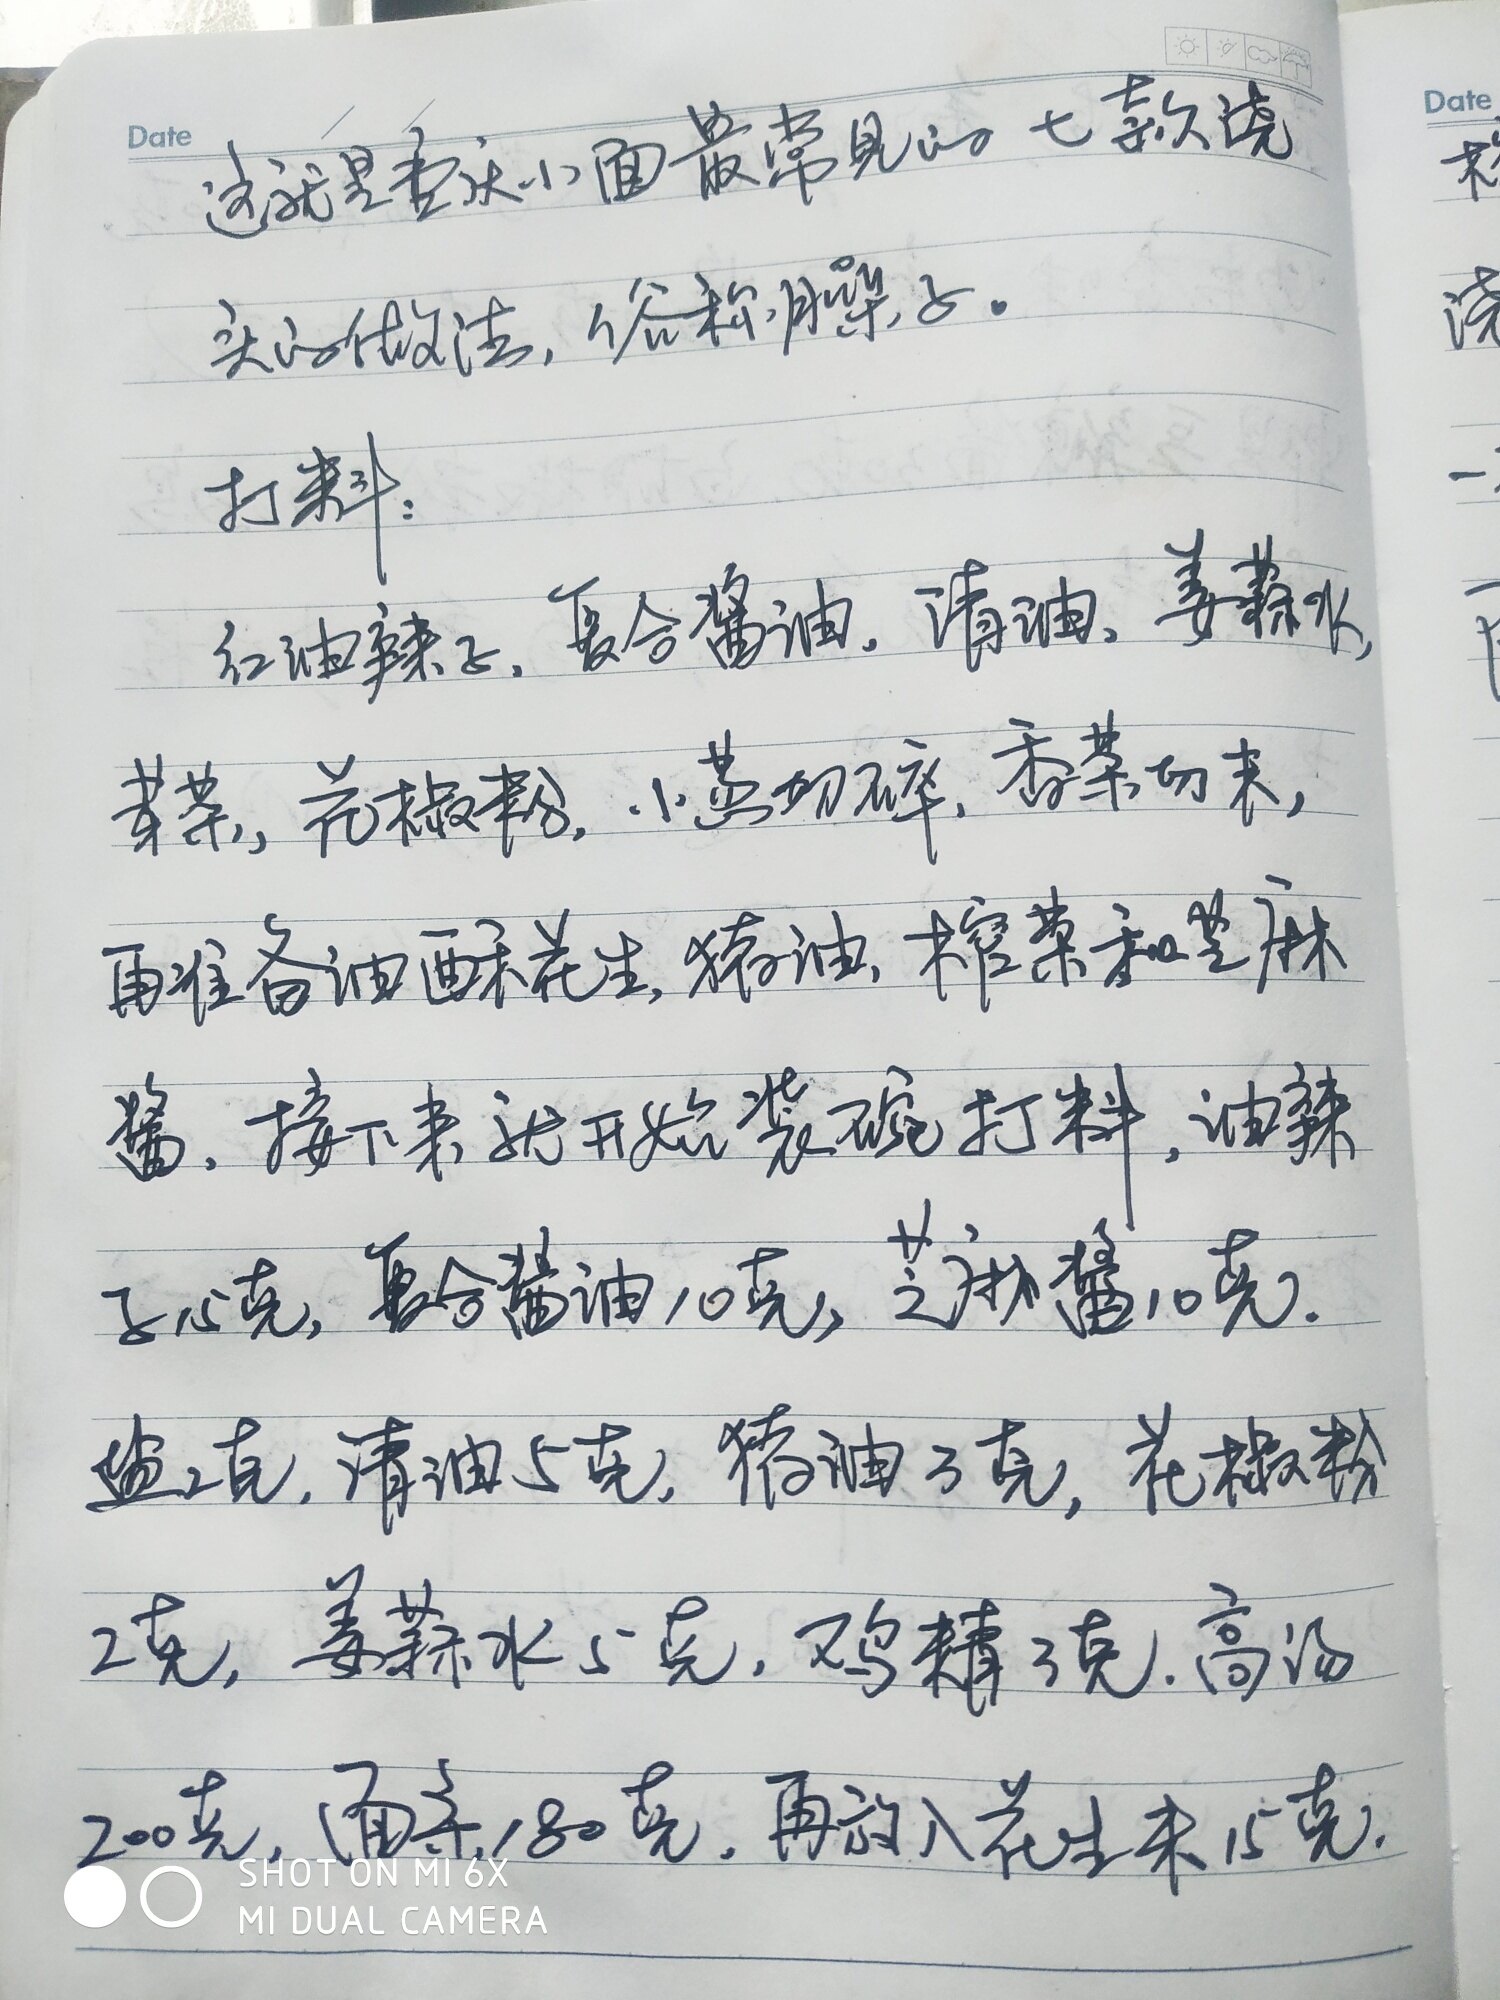 Date
这就是重庆小面最常见的七款浇
头的做法，俗称臊子。
打料：
红油辣子，复合酱油，清油、姜蒜水，
芽菜，花椒粉，小葱切碎，香菜切末，
再准备油酥花生，猪油，榨菜和芝麻
酱，接下来就开始装碗打料，油辣
子15克，复合酱油10克，芝麻酱10克.
盐2克，清油5克，猪油3克，花椒粉
2克，姜蒜水5克，鸡精3克.高汤
200克，面条180克.再放入花生末15克.
SHOT ON MI 6X
MI DUAL CAMERA
Date